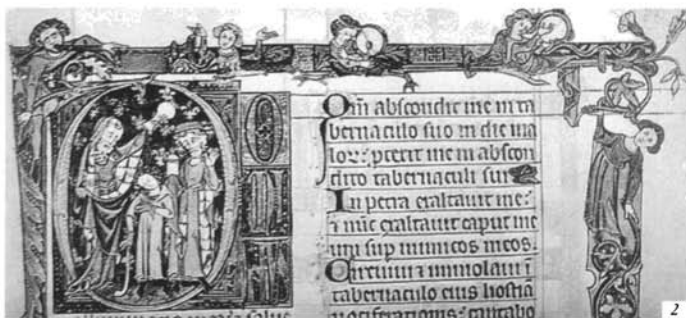 Qm̄ abscondit me in ta
bernaculo suo in die ma
lor̄: ptexit me in abscon
dito tabernaculi sui
In petra exaltauit me:
⁊ nūc exaltauit caput me
um sup inimicos meos.
Circuiui ⁊ immolaui ī
tabernaculo eius hostiā
uociferationis: cantabo
2